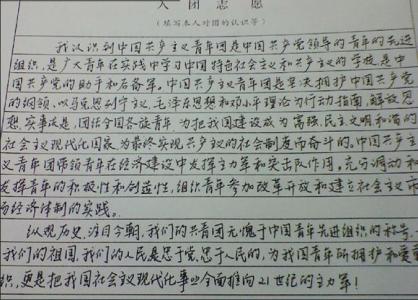 入团志愿
（填写本人对团的认识等）
我认识到中国共产主义青年团是中国共产党领导的青年的先进
组织，是广大青年在实践中学习中国特色社会主义和共产主义的学校，是中
国共产党的助手和后备军。中国共产主义青年团是坚决拥护中国共产党
的纲领，以马克思列宁主义，毛泽东思想和邓小平理论为行动指南，解放思
想，实事求是，团结全国各族青年，为把我国建设成为富强，民主文明和谐的
社会主义现代化国家，为最终实现共产主义的社会制度而奋斗的。中国共产主
义青年团带领青年在经济建设中发挥主力军和突击队作用。充分调动和
发挥青年的积极性和创造性，组织青年参加改革开放和建立社会主义市
场经济体制的实践。
纵观历史，注目今朝，我们的共青团无愧于中国青年先进组织的称号，
我们的祖国，我们的人民是忠于党，忠于人民的，为我国青年所拥护和爱戴
织，更是把我国社会主义现代化事业全面推向21世纪的主力军！